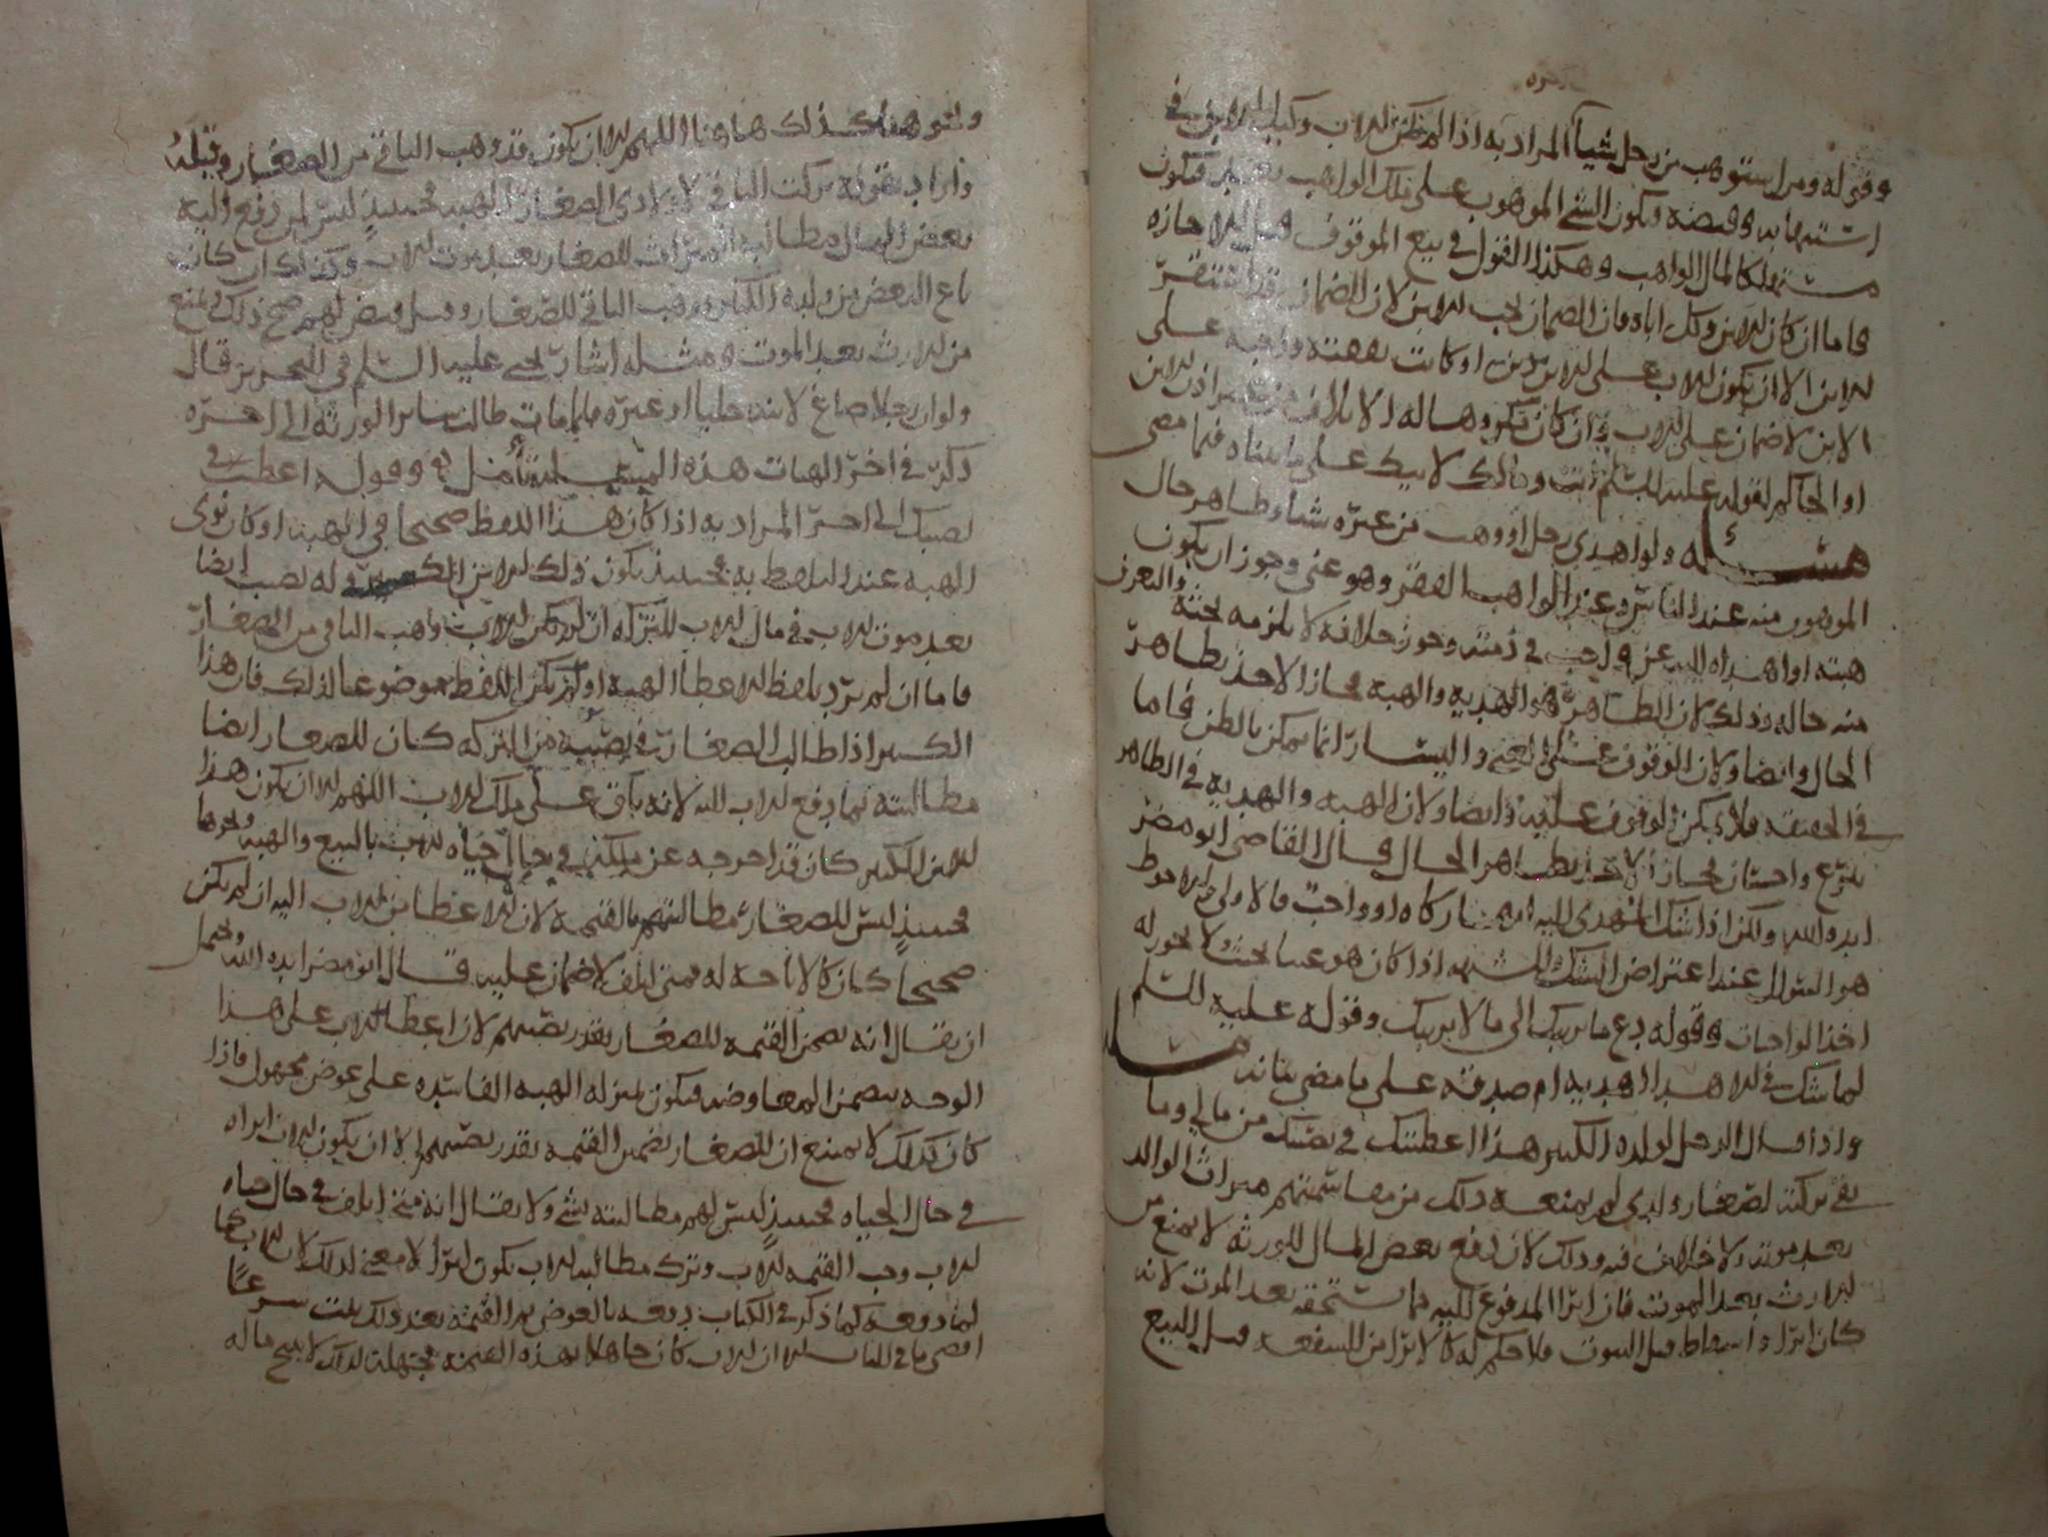 وقوله ومن استوهب من رجل شيأ المراد به اذا لم يكن الاب وكيلا للابن في
استيهابه وقبضه فيكون الشي الموهوب على ملك الواهب فيكون
مستهلكا لمال الواهب وهكذا القول في بيع الموقوف قبل الاجازه
فاما ان كان الابن وكل اباه فان الضمان يجب للابن لان الضمان قد استقر
للابن الا ان يكون للاب على الابن دين او كانت نفقته واجبه على
الابن لا ضمان على الاب وان كان مكروها له الاتلاف من غير اذن الابن
او الحاكم لقوله عليه السلم انت ومالك لابيك على ما بيناه فيما مضى
مسئله ولو اهدى رجل او وهب من غيره شيا وظاهر حال
الموهوب منه عند الناس وعند الواهب الفقر وهو غني وجوز ان يكون
هبته او اهداه اليه عن واجب في ذمته وجوز خلافه لا يلزمه بحثه والتعرف
منه حاله وذلك لان الظاهر هو الهديه والهبه فجاز الاخذ بظاهر
الحال وايضا ولان الوقوف على الغنى واليسار انما يمكن بالظن فاما
في الحقيقه فلا يمكن الوقوف عليه وايضا ولان الهبه والهديه في الظاهر
تبرع واحسان فجاز الاخذ بظاهر الحال قال القاضي ابو مضر
ايده الله ولكن اذا شك المهدى اليه انها زكاه او واجب فالاولى والاحوط
هو السوال عند اعتراض الشك والشبهه اذا كان هو غنيا بحيث لا يجوز له
اخذ الواجبات وقوله دع ما يريبك الى ما لا يريبك وقوله عليه السلم
لما شك في الاهدا اهديه ام صدقه على ما مضى بيانه مسله
واذا قال الرجل لولده الكبير هذا اعطيتك في نصيبك من مالي وما
بقي تركته لصغار ولدي لم يمنعه ذلك من مقاسمتهم ميراث الوالد
بعد موته ولا خلاف فيه وذلك لان دفع بعض المال للورثه لا يمنع من
الارث بعد الموت فان ابرا المدفوع اليه مما يستحقه بعد الموت لانه
كان ابراء واسقاط قبل الثبوت فلا حكم له كالابرا من الشفعه قبل البيع
كذلك هاهنا اللهم الا ان يكون قد وهب الباقي من الصغار وقبله
واراد بقوله تركت الباقي لاولادي الصغار الهبه فحينئذ ليس لمن دفع اليه
بعض المال مطالبه الميراث للصغار بعد موت الاب وكذلك ان كان
باع البعض من ولده الكبار ووهب الباقي للصغار وقبل وقبض لهم صح ذلك ويمنع
من الارث بعد الموت ومثله اشار يحيى عليه السلم في التحرير قال
ولو ان رجلا صاغ لابنه حليا او غيره فلما مات طالب ساير الورثه الى اخره
ذكر في اخر الهبات هذه وقوله اعطيت في
نصيبك الى اخره المراد به اذا كان هذا اللفظ صحيحا في الهبه او كان نوى
الهبه عند التلفظ به فحينئذ يكون ذلك للابن الكبير وله نصيب ايضا
بعد موت الاب في مال الاب للتركه ان لم يكن الاب واهب الباقي من الصغار
فاما ان لم يرد بلفظ الاعطا الهبه او لم يكن اللفظ موضوعا لذلك فان هذا
الكبير اذا طالب الصغار في نصيبه من التركه كان للصغار ايضا
مطالبته بما دفع الاب اليه لانه باق على ملك الاب اللهم الا ان يكون هذا
الابن الكبير كان قد اخرجه عن ملكه في حال حياه الاب بالبيع والهبه ونحوها
فحينئذ ليس للصغار مطالبتهم بالقيمه لان الاعطا من الاب اليه ان لم يكن
صحيحا كان كالاباحه له فمتى اتلف لا ضمان عليه قال ابو مضر ايده الله ويحتمل
ان يقال انه يضمن القيمه للصغار بقدر نصيبهم لان اعطا الاب على هذا
الوجه يتضمن المعاوضه فيكون بمنزله الهبه الفاسده على عوض مجهول فاذا
كان كذلك لا يمتنع ان للصغار تضمين القيمه بقدر نصيبهم الا ان يكون الاب ابراه
في حال الحياه فحينئذ ليس لهم مطالبته بشي ولا يقال انه متى اتلف في حال حياه
الاب وجب القيمه للاب وترك مطالبه الاب يكون ابرا لا معنى لذلك لان الاب كما
انما دفعه كما ذكر في الكتاب دفعه بالعوض القيمه بعد ذلك
اقصى ما في الباب ان الاب كان جاهلا بهذه القيمه فجهله لذلك لا يبيح ماله